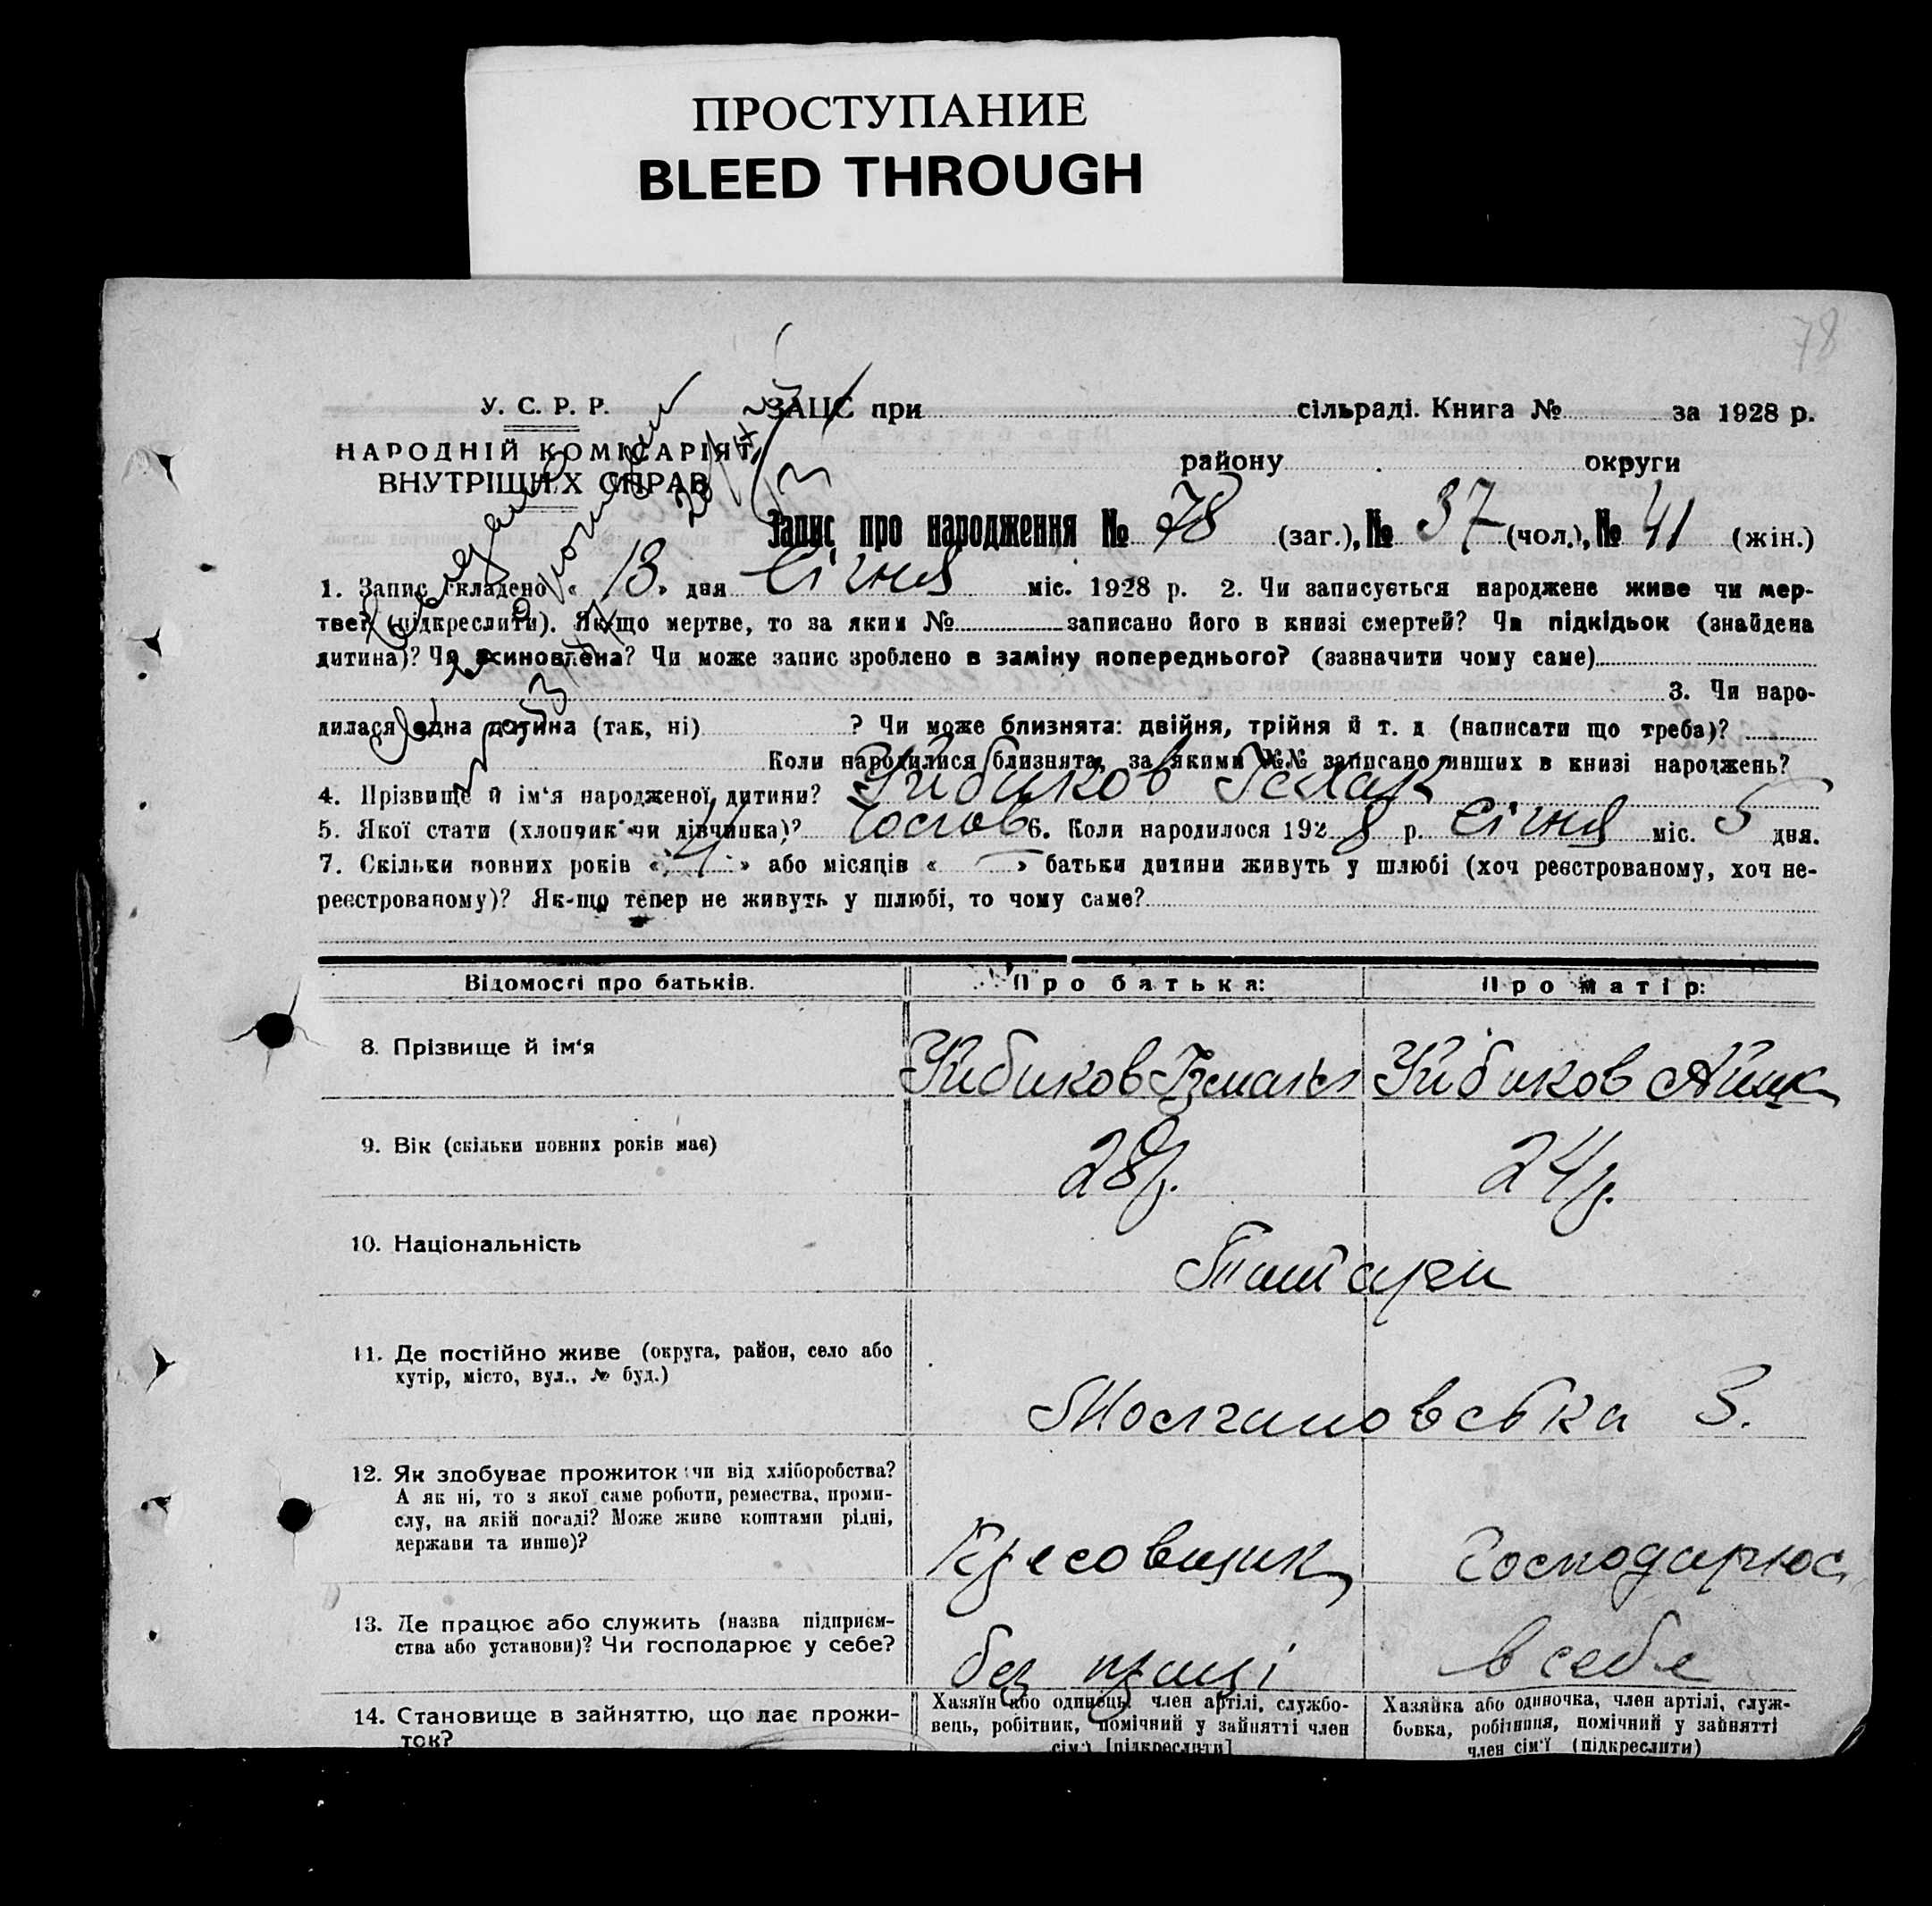 ПРОСТУПАНИЕ
BLEED THROUGH
78
У. С. Р. Р.
НАРОДНІЙ КОМІСАРІЯТ
ВНУТРІШНІХ СПРАВ
ЗАЦС при сільраді. Книга № за 1928 р.
району округи
Запис про народження № 78 (заг.), № 37 (чол.), № 41 (жін.)
1. Запис складено « 13 » дня Січня міс. 1928 р. 2. Чи записується народжене живе чи мер-
тве? (підкреслити). Як-що мертве, то за яким № записано його в книзі смертей? Чи підкідьок (знайдена
дитина)? Чи всиновлена? Чи може запис зроблено в заміну попереднього? (зазначити чому саме)
3. Чи наро-
дилася одна дитина (так, ні) ? Чи може близнята: двійня, трійня й т. д (написати що треба)?
Коли народилися близнята, за якими №№ записано инших в книзі народжень?
4. Прізвище й ім'я народженої дитини?
5. Якої стати (хлопчик чи дівчинка)? 6. Коли народилося 1928 р. Січня міс. 5 дня.
7. Скільки повних років « 4 » або місяців « — » батьки дитини живуть у шлюбі (хоч реєстрованому, хоч не-
реєстрованому)? Як-що тепер не живуть у шлюбі, то чому саме?
Відомості про батьків. Про батька: Про матір:
8. Прізвище й ім'я
9. Вік (скільки повних років має) 28 р. 24 р.
10. Національність Татари
11. Де постійно живе (округа, район, село або
хутір, місто, вул., № буд.)
Молчановська 3.
12. Як здобуває прожиток: чи від хліборобства?
А як ні, то з якої саме роботи, ремества, проми-
слу, на якій посаді? Може живе коштами рідні,
держави та инше)?
13. Де працює або служить (назва підприєм-
ства або установи)? Чи господарює у себе?
без праці в себе
14. Становище в зайняттю, що дає прожи-
ток?
Хазяїн або одинець, член артілі, службо-
вець, робітник, помічний у зайнятті член
сім'ї [підкреслити]
Хазяйка або одиночка, член артілі, служ-
бовка, робітниця, помічний у зайнятті
член сім'ї (підкреслити)